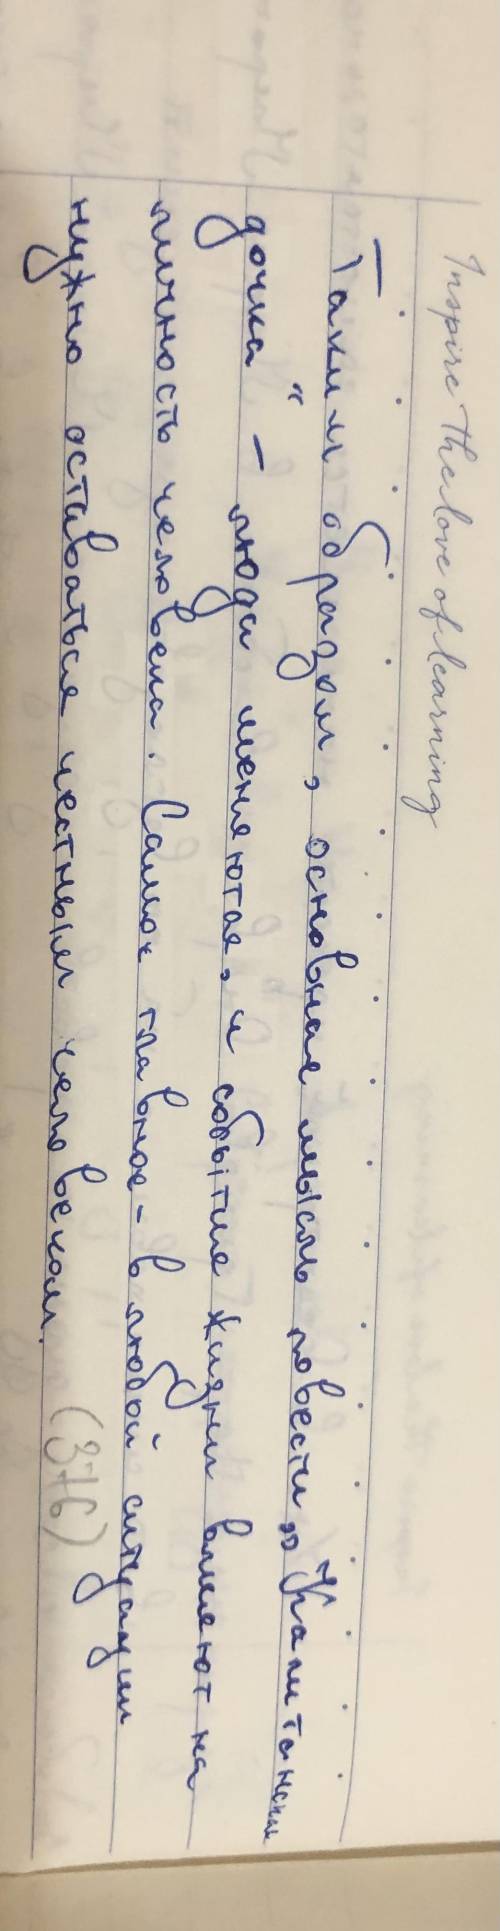 Inspire the love of learning
Таким образом, основная мысль повести „Капитанская
дочка" - люди меняются, и событие жизни влияют на
личность человека. Самое главное - в любой ситуации
нужно оставаться честным человеком.
(376)